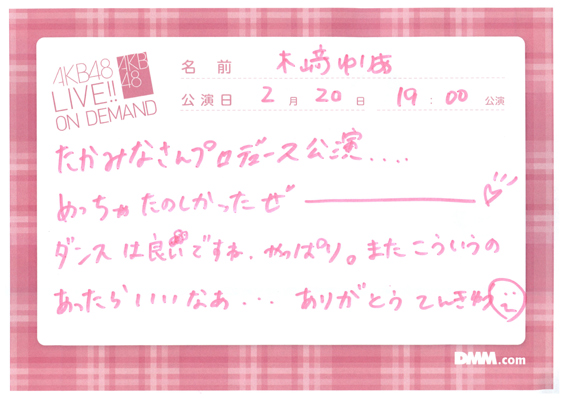 AKB48
LIVE!!
ON DEMAND
AKB
48
名前 木﨑ゆりあ
公演日 2月20日 19:00 公演
たかみなさんプロデュース公演....
めっちゃたのしかったぜ――――♡
ダンスは良いですね、やっぱり。またこういうの
あったらいいなあ... ありがとうてんきゅう
DMM.com